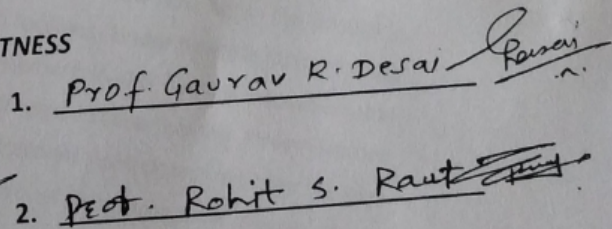 TNESS
1. Prof. Gaurav R. Desai
2. Prof. Rohit S. Raut